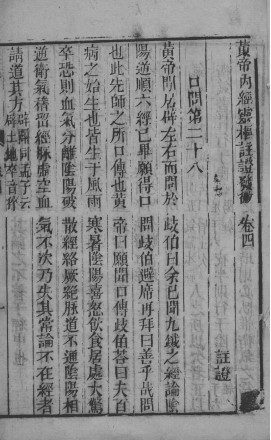 黃帝內經靈樞註證發微 卷四
註證
口問第二十八
黃帝閒居辟左右而問於岐伯曰余已聞九鍼之經論陰
陽逆順六經已畢願得口問岐伯避席再拜曰善乎哉問
也此先師之所口傳也黃帝曰願聞口傳岐伯荅曰夫百
病之始生也皆生于風雨寒暑陰陽喜怒飲食居處大驚
卒恐則血氣分離陰陽破散經絡厥絕脉道不通陰陽相
逆衛氣稽留經脉虛空血氣不次乃失其常論不在經者
請道其方 辟闢同孟子云辟土地卒音猝